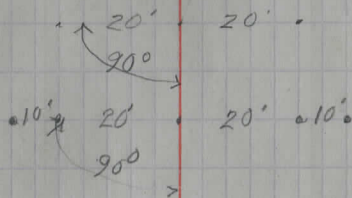 20' 20'
90°
10' 20' 20' 10'
90°